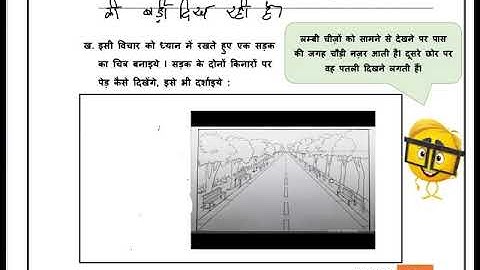 की बड़ी दिख रही है?
ख. इसी विचार को ध्यान में रखते हुए एक सड़क
का चित्र बनाइये । सड़क के दोनों किनारों पर
पेड़ कैसे दिखेंगे, इसे भी दर्शाइये :
लम्बी चीज़ों को सामने से देखने पर पास
की जगह चौड़ी नज़र आती है। दूसरे छोर पर
वह पतली दिखने लगती हैं।